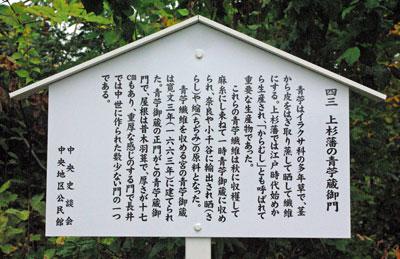 四三 上杉藩の青苧蔵御門
青苧はイラクサ科の多年草で、茎
から皮をはぎ取り蒸して晒して繊維
にする。上杉藩では江戸時代始めか
ら生産され、「からむし」とも呼ばれて
重要な生産物であった。
これらの青苧繊維は秋に収穫して
麻糸にし束ねて一時青苧御蔵に収め
られ、奈良や小千谷に輸出され晒(さ
らし)や縮(ちぢみ)の原料となった。
青苧繊維を収める宮の青苧御蔵
は寛文三年(一六六三年)に建てられ
た。青苧御蔵の正門がこの青苧蔵御
門で、屋根は昔木羽葺で、厚さが十七
㎝もあり、重厚な感じのする門で長井
では中世に作られた数少ない門の一つ
である。
中央史談会
中央地区公民館